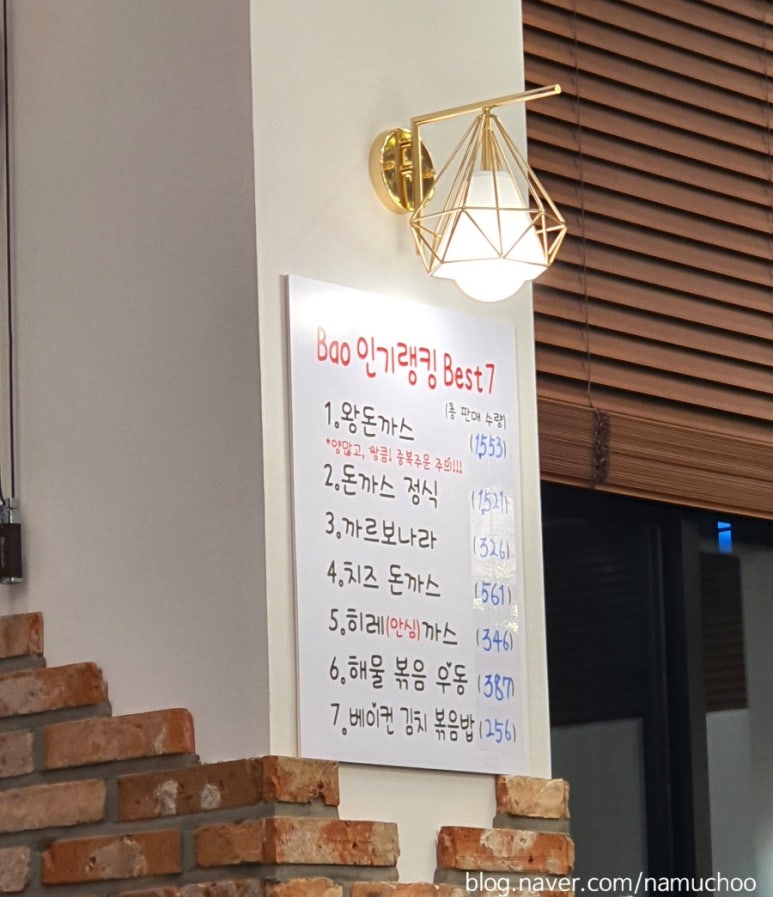 Bao 인기랭킹 Best7
(총 판매 수량)
1. 왕돈까스 (1,553)
*양많고, 짱큼! 중복주문 주의!!!
2. 돈까스 정식 (1,521)
3. 까르보나라 (326)
4. 치즈 돈까스 (561)
5. 히레(안심)까스 (346)
6. 해물 볶음 우동 (387)
7. 베이컨 김치 볶음밥 (256)
blog.naver.com/namuchoo